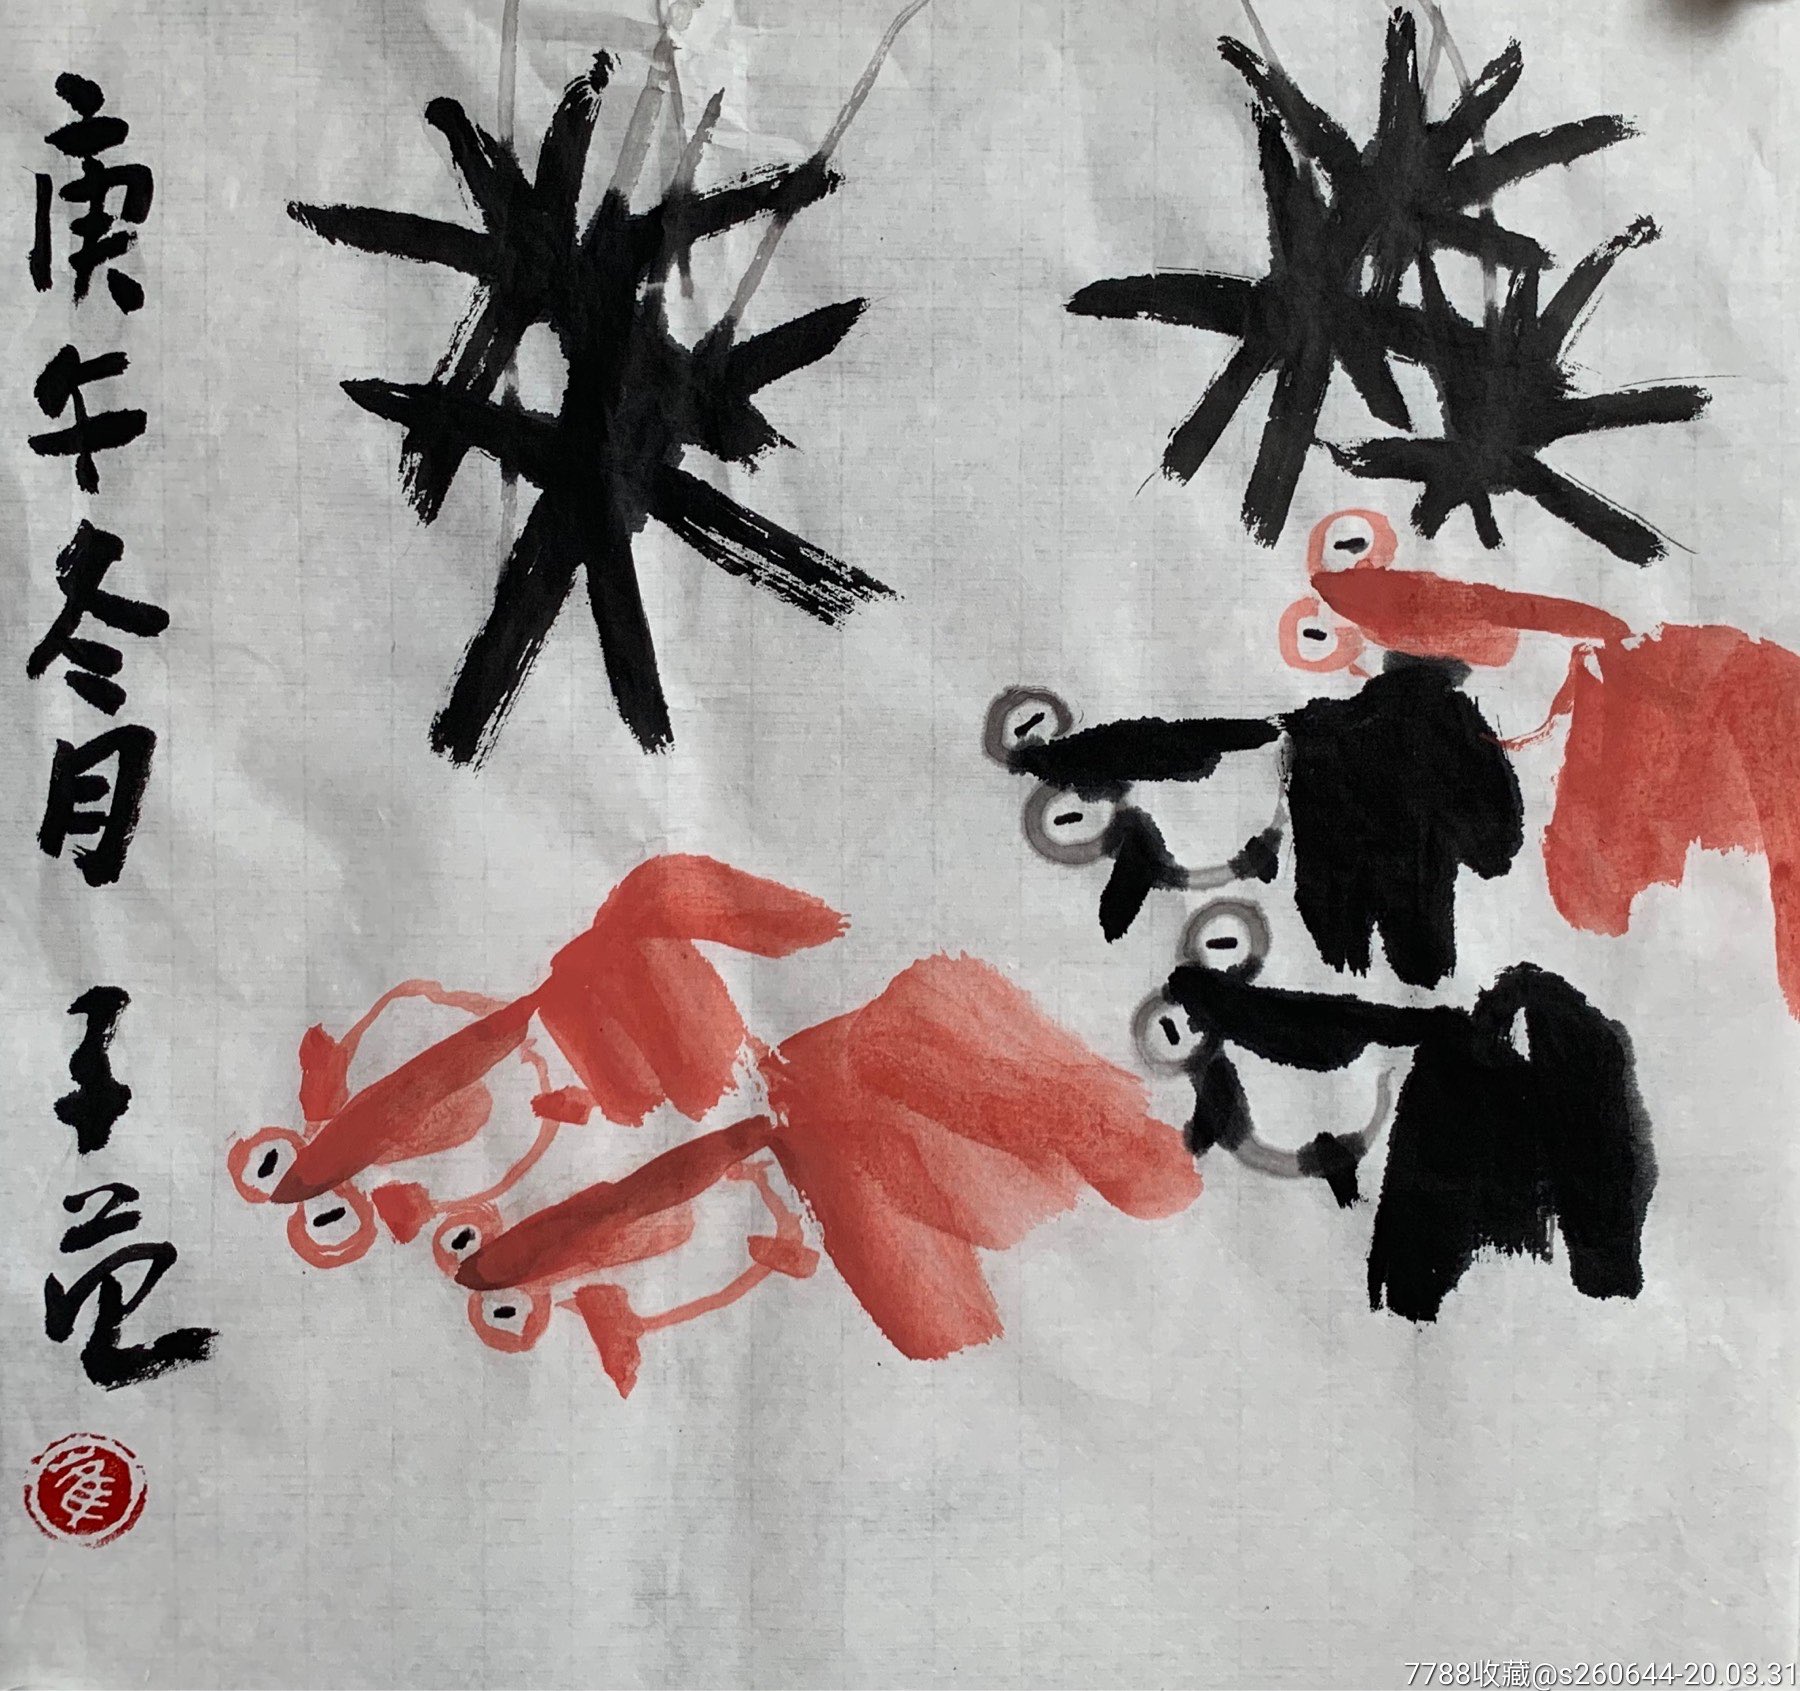 庚午冬月 子范
崔
7788收藏@s260644-20.03.31